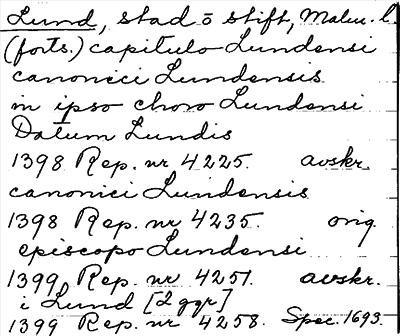 Lund, stad o stift, Malm. l.
(forts.) capitulo Lundensi
canonici Lundensis
in ipso choro Lundensi
Datum Lundis
1398 Rep. nr 4225. avskr.
canonici Lundensis
1398 Rep. nr 4235. orig.
episcopo Lundensi
1399 Rep. nr 4251. avskr.
i Lund [2 ggr]
1399 Rep. nr 4258. Spec. 1693.